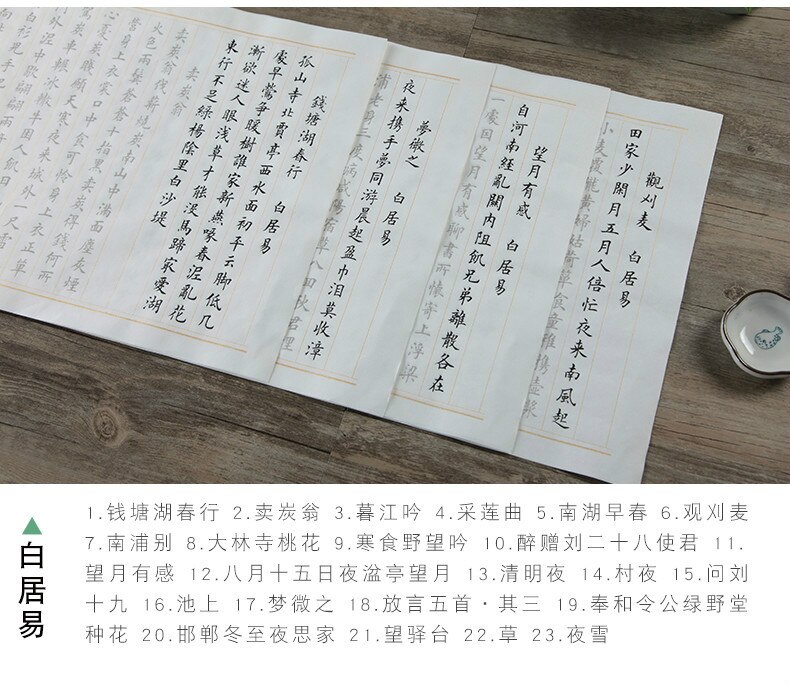 觀刈麦 白居易
田家少閑月五月人倍忙夜来南風起
小麦覆隴黄婦姑荷簞食童稚携壺漿
望月有感 白居易
自河南経亂關内阻飢兄弟離散各在
一處因望月有感聊書所懷寄上浮梁
夢微之 白居易
夜来携手夢同游晨起盈巾泪莫收漳
浦老身三度病咸陽宿草八回秋君埋
錢塘湖春行 白居易
孤山寺北賈亭西水面初平云脚低几
處早鶯爭暖樹誰家新燕啄春泥亂花
漸欲迷人眼浅草才能沒馬蹄家愛湖
東行不足綠楊陰里白沙堤
卖炭翁
卖炭翁伐薪燒炭南山中满面塵灰煙
火色两鬢蒼蒼十指黑卖炭得錢何所
營身上衣裳口中食可怜身上衣正单
心憂炭賤願天寒夜来城外一尺雪
白居易
1.钱塘湖春行 2.卖炭翁 3.暮江吟 4.采莲曲 5.南湖早春 6.观刈麦
7.南浦别 8.大林寺桃花 9.寒食野望吟 10.醉赠刘二十八使君 11.
望月有感 12.八月十五日夜湓亭望月 13.清明夜 14.村夜 15.问刘
十九 16.池上 17.梦微之 18.放言五首·其三 19.奉和令公绿野堂
种花 20.邯郸冬至夜思家 21.望驿台 22.草 23.夜雪